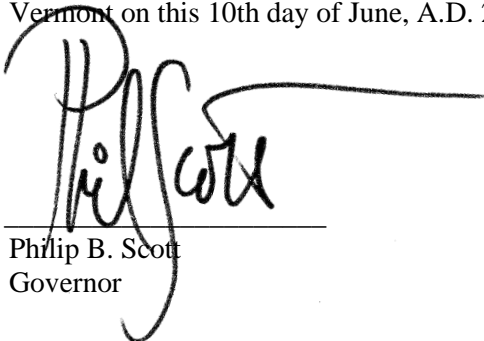 Vermont on this 10th day of June, A.D. 2
Phil Scott
Philip B. Scott
Governor